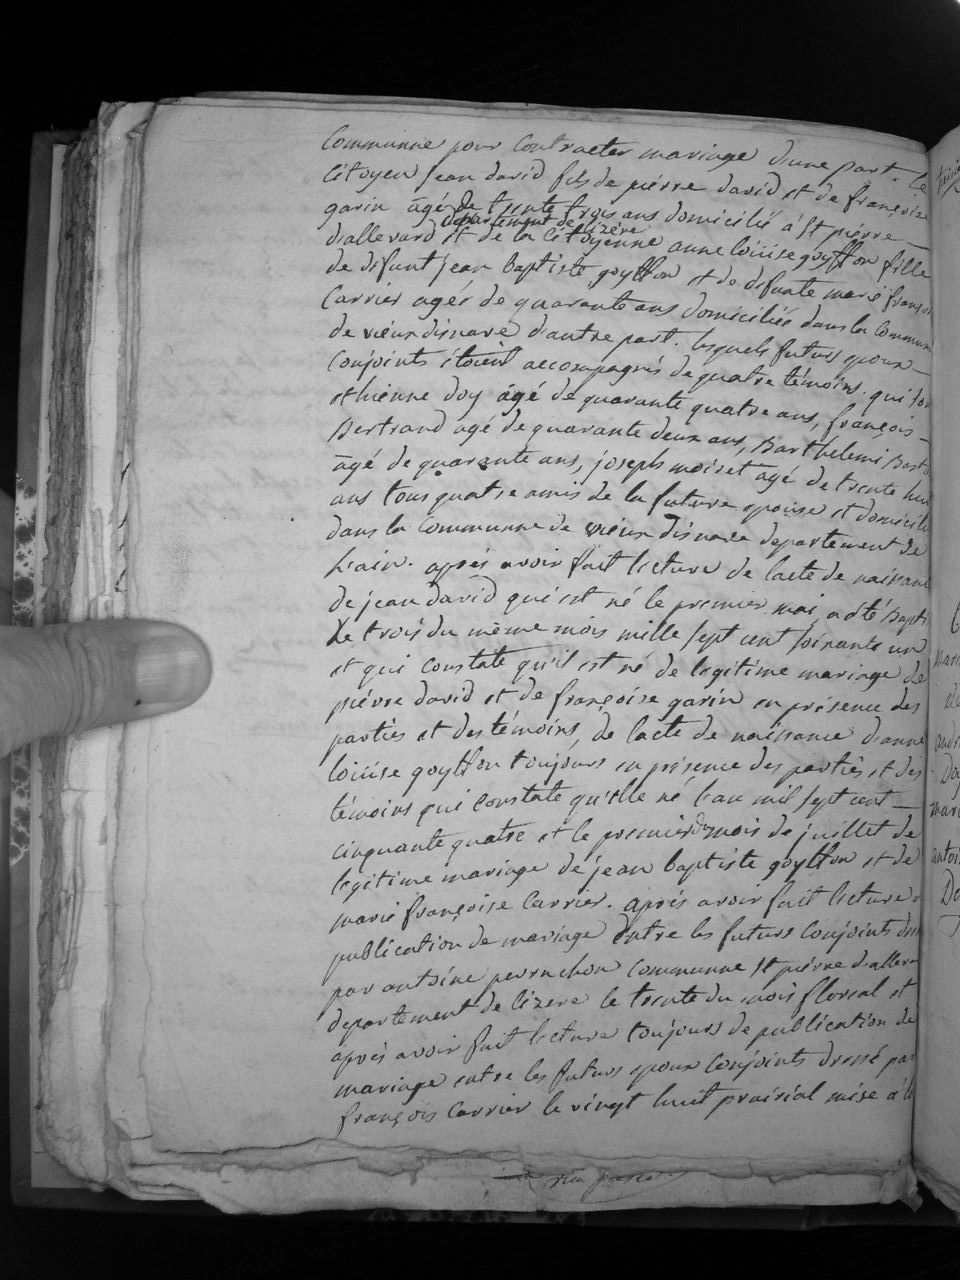 Communne pour Contracter mariage dune part. Le
Citoyen jean david fils de piérre david et de françoize
garin âgé de trente trois ans domicilié à St piérre
département de lizère
dallevard et de la Citoyenne anne loüise goytton fille
de défunt jean baptiste goytton et de défunte marie franço
Carrier agée de quarante ans domiciliés dans la Commune
de vieux disnave d'autre part. lesquels futurs epoux
Conjoints étoient accompagnés de quatre témoins. qui son
ethienne doy âgé de quarante quatre ans, françois
Bertrand agé de quarante deux ans, Barthelemi
âgé de quarante ans, joseph moiret âgé de trente hui
ans tous quatre amis de la future epouse et domicil
dans la Communne de vieux disnave departement de
Lain. après avoir fait lecture de lacte de naissan
de jean david qui est né le premier mai, a été Bapti
Le trois du même mois mille sept cent soixante un
et qui Constate qu'il est né de legitime mariage de
piérre david et de françoise garin en présence des
parties et des témoins, de lacte de naissance danne
loüise goytton toujours en présence des parties et des
témoins qui Constate qu'elle né l'an mil sept cent
cinquante quatre et le premier du mois de juillet de
legitime mariage de jean baptiste goytton et de
marie françoise Carrier. après avoir fait lecture
publication de mariage entre les futurs Conjoints
par antoine perruchon Communne St piérre dalleva
departement de lizere le trente du mois floreal et
après avoir fait lecture toujours de publication de
mariage entre les futurs epoux Conjoints dressé par
françois Carrier le vingt huit prairial mise à